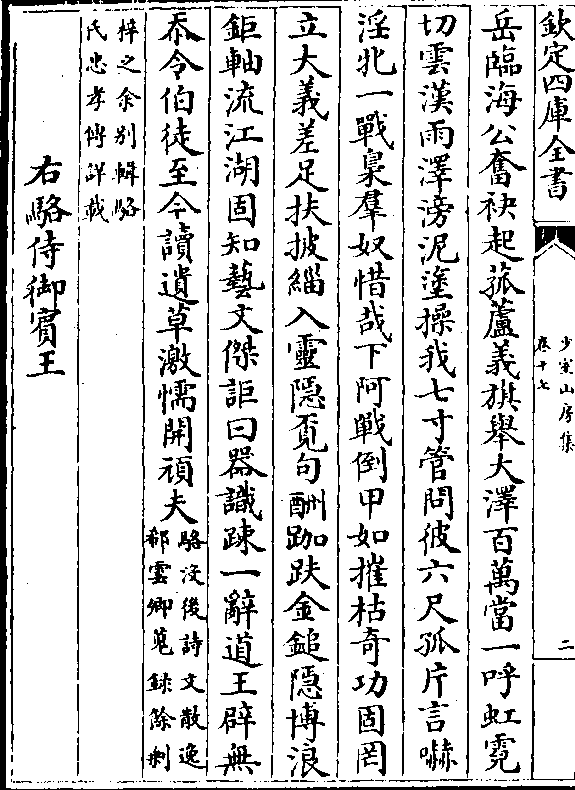 欽定四庫全書
少室山房集
卷十七
二
岳臨海公奮袂起菰蘆義旗舉大澤百萬當一呼虹霓
切雲漢雨澤滂泥塗操我七寸管問彼六尺孤片言嚇
淫牝一戰梟羣奴惜哉下阿戰倒甲如摧枯奇功固罔
立大義差足扶披緇入靈隠覓句酬跏趺金鎚隠博浪
鉅軸流江湖固知藝文傑詎曰器識踈一辭道王辟無
忝令伯徒至今讀遺草激懦開頑夫
駱没後詩文散逸
郗雲卿蒐録餘刹
梓之余别輯駱
氏忠孝傳詳載
右駱侍御賔王